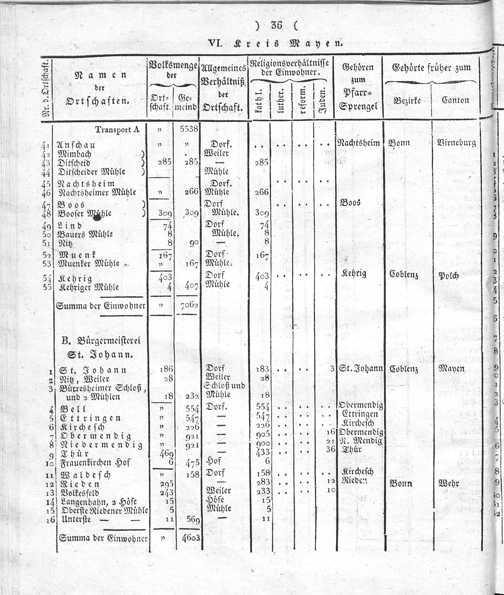 ( 36 (
VI. Kreis Mayen.
Nr. d. Ortschaft. | Namen der Ortschaften. | Volksmenge der Ortschaft. | Gemeind | Allgemeines Verhältniß der Ortschaft. | Religionsverhältnisse der Einwohner. kathl. | luther. | reform. | Juden. | Gehören zum Pfarr-Sprengel | Gehörte früher zum Bezirke | Canton
Transport A " 5538
41 Anschau Dorf. Nachtsheim Bonn Virneburg
42 Mimbach ) Weiler
43 Ditscheid ) 285 285 — 285
44 Ditscheider Mühle ) Mühle
45 Nachtsheim Dorf.
46 Nachtsheimer Mühle " 266 Mühle 266
47 Boos ) Dorf Boos
48 Booser Mühle ) 309 309 Mühle. 309
49 Lind 74 Dorf 74
50 Bauers Mühle 8 Mühle. 8
51 Nitz 8 90 — 8
52 Muenk 167 Dorf 167
53 Muenker Mühle " 167 Mühle.
54 Kehrig 403 Dorf 403 Kehrig Coblenz Polch
55 Kehriger Mühle 4 407 Mühle 4
Summa der Einwohner " 7062
B. Bürgermeisterei
St. Johann.
1 St. Johann 186 Dorf 183 3 St. Johann Coblenz Mayen
2 Nitz, Weiler 28 Weiler 28
3 Bürresheimer Schloß, Schloß und
und 2 Mühlen 18 232 Mühle 18
4 Bell " 554 Dorf. 554 Obermendig
5 Ettringen " 547 — 547 Ettringen
6 Kirchesch " 226 — 226 Kirchesch
7 Obermendig " 921 — 905 16 Obermendig
8 Niedermendig " 921 — 900 21 N. Mendig
9 Thür 469 — 433 36 Thür
10 Frauenkirchen Hof 6 475 Hof 6
11 Waldesch " 158 Dorf 158 Kirchesch
12 Rieden 295 — 283 12 Rieden Bonn Wehr
13 Volkesfeld 243 Weiler 233 10
14 Langenhahn, 2 Höfe 15 Höfe 15
15 Oberste Riedener Mühle 5 Mühle 5
16 Unterste — — 11 569 — 11
Summa der Einwohner " 4603